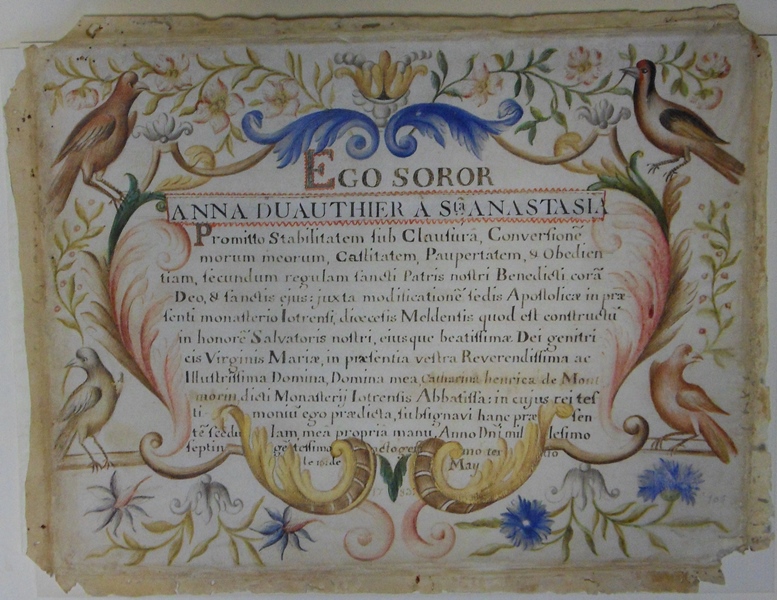 EGO SOROR
ANNA DUAUTHIER À Sᵗᵃ ANASTASIA
Promitto Stabilitatem sub Clausurâ, Conversionē
morum meorum, Castitatem, Paupertatem, & Obedien
tiam, secundum regulam sancti Patris nostri Benedicti corā
Deo, & sanctis ejus: juxta modificationē sedis Apostolicæ in præ
senti monasterio Iotrensi, diœcesis Meldensis quod est constructū
in honorē Salvatoris nostri, eiusque beatissimæ Dei genitri
cis Virginis Mariæ, in præsentia vestra Reverendissima ac
Illustrissima Domina, Domina mea Catharina henrica de Mont
morin, dicti Monasterij Iotrensis Abbatissa: in cujus rei tes
ti monium ego prædicta, subsignavi hanc præ sen
tē scedu lam, meâ propriâ manu, Anno Dnj mil lesimo
septin gentesimo mo ter tio
le 16 de May